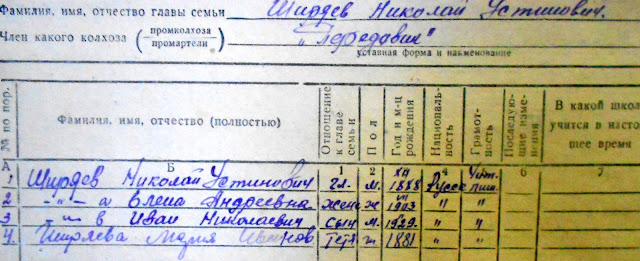 Фамилия, имя, отчество главы семьи Ширяев Николай Устинович.
Член какого колхоза (промколхоза промартели) „Передовик"
уставная форма и наименование
№ по пор. Фамилия, имя, отчество (полностью) Отношение к главе семьи Пол Год и м-ц рождения Национальность Грамотность Последующие изменения В какой школ учится в настоя щее время
А Б 1 2 3 4 5 6 7
1 Ширяев Николай Устинович гл. м. XII 1888 Русск
2 -„- а Елена Андреевна жена ж VI 1903 „ „
3 -„- в Иван Николаевич сын м. 1929. „ „
4 Ширяева Мария Иванов тетя ж. 1881 „ „